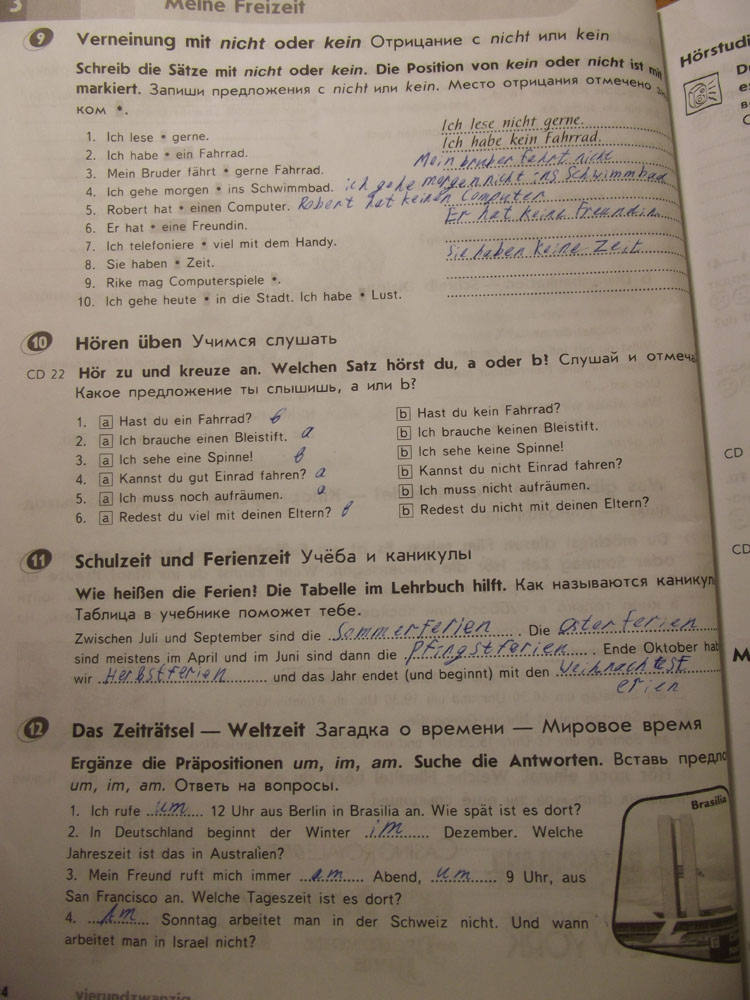 3 Meine Freizeit
9 Verneinung mit nicht oder kein Отрицание с nicht или kein
Schreib die Sätze mit nicht oder kein. Die Position von kein oder nicht ist mit
markiert. Запиши предложения с nicht или kein. Место отрицания отмечено
ком •.
1. Ich lese • gerne. Ich lese nicht gerne.
2. Ich habe • ein Fahrrad. Ich habe kein Fahrrad.
3. Mein Bruder fährt • gerne Fahrrad. Mein bruber fährt nicht
4. Ich gehe morgen • ins Schwimmbad. ich gehe morgen nicht ins Schwimmbad
5. Robert hat • einen Computer. Robert hat keinen Computer
6. Er hat • eine Freundin. Er hat keine Freundin.
7. Ich telefoniere • viel mit dem Handy.
8. Sie haben • Zeit. Sie haben keine Zeit
9. Rike mag Computerspiele •.
10. Ich gehe heute • in die Stadt. Ich habe • Lust.
10 Hören üben Учимся слушать
CD 22 Hör zu und kreuze an. Welchen Satz hörst du, a oder b? Слушай и отмеча
Какое предложение ты слышишь, a или b?
1. a Hast du ein Fahrrad? в b Hast du kein Fahrrad?
2. a Ich brauche einen Bleistift. a b Ich brauche keinen Bleistift.
3. a Ich sehe eine Spinne! в b Ich sehe keine Spinne!
4. a Kannst du gut Einrad fahren? a b Kannst du nicht Einrad fahren?
5. a Ich muss noch aufräumen. a b Ich muss nicht aufräumen.
6. a Redest du viel mit deinen Eltern? в b Redest du nicht mit deinen Eltern?
11 Schulzeit und Ferienzeit Учёба и каникулы
Wie heißen die Ferien? Die Tabelle im Lehrbuch hilft. Как называются каникул
Таблица в учебнике поможет тебе.
Zwischen Juli und September sind die Sommerferien. Die Osterferien
sind meistens im April und im Juni sind dann die Pfingstferien. Ende Oktober hab
wir Herbstferien und das Jahr endet (und beginnt) mit den Weihnachtsf
erien
12 Das Zeiträtsel — Weltzeit Загадка о времени — Мировое время
Ergänze die Präpositionen um, im, am. Suche die Antworten. Вставь предло
um, im, am. Ответь на вопросы.
1. Ich rufe um 12 Uhr aus Berlin in Brasilia an. Wie spät ist es dort?
2. In Deutschland beginnt der Winter im Dezember. Welche
Jahreszeit ist das in Australien?
3. Mein Freund ruft mich immer am Abend, um 9 Uhr, aus
San Francisco an. Welche Tageszeit ist es dort?
4. Am Sonntag arbeitet man in der Schweiz nicht. Und wann
arbeitet man in Israel nicht?
Brasilia
4 vierundzwanzig
Hörstudi
CD
CD
M